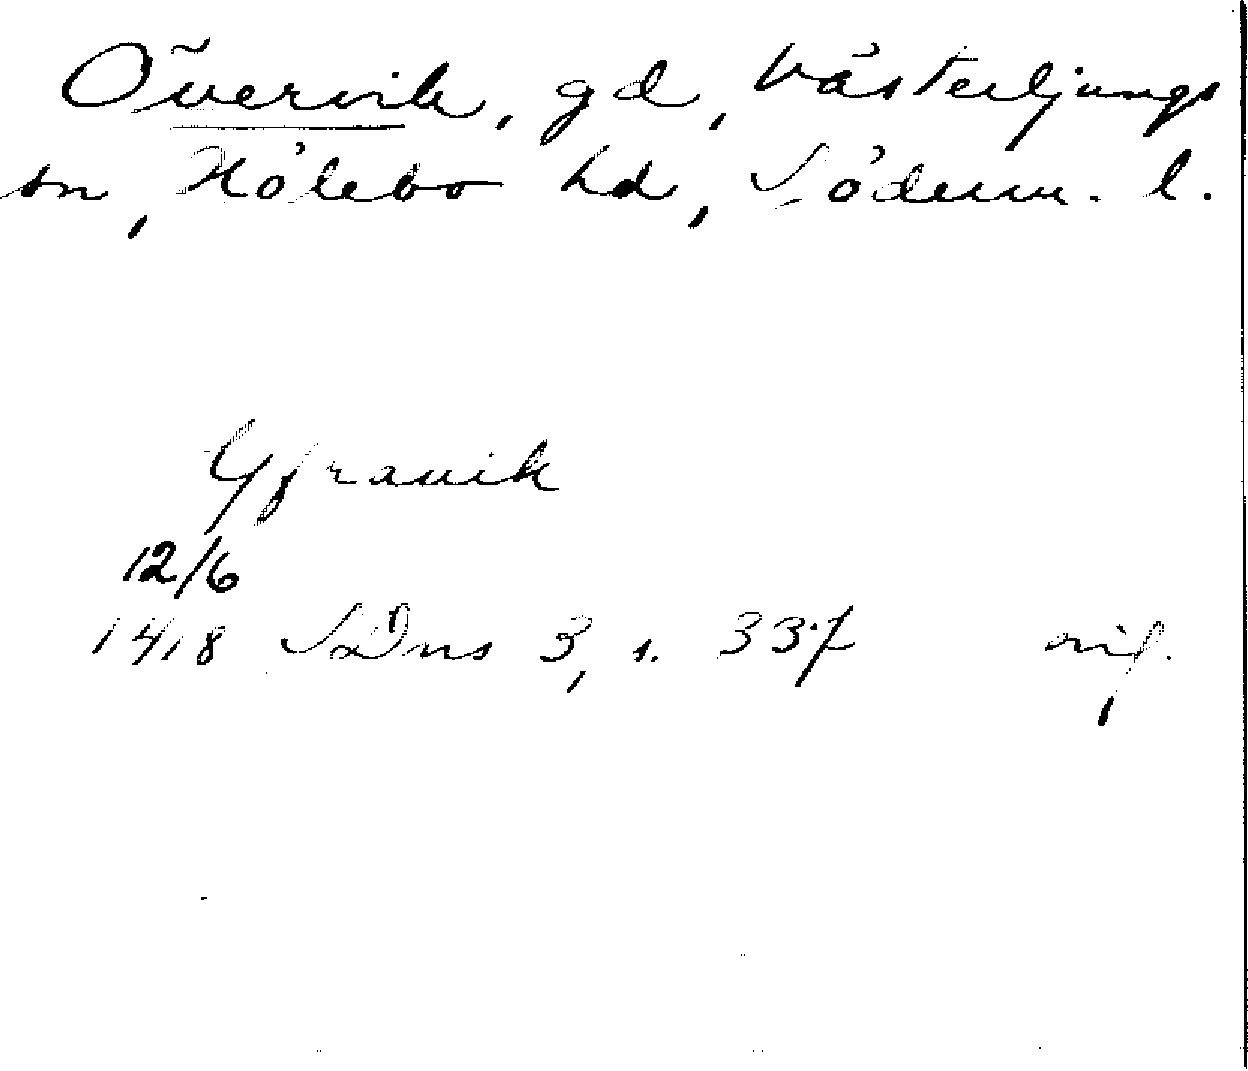 Övervik, gd, Västerljungs
sn, Hölebo hd, Söderm. l.
Yfravik
12/6
1418 SDns 3, s. 337